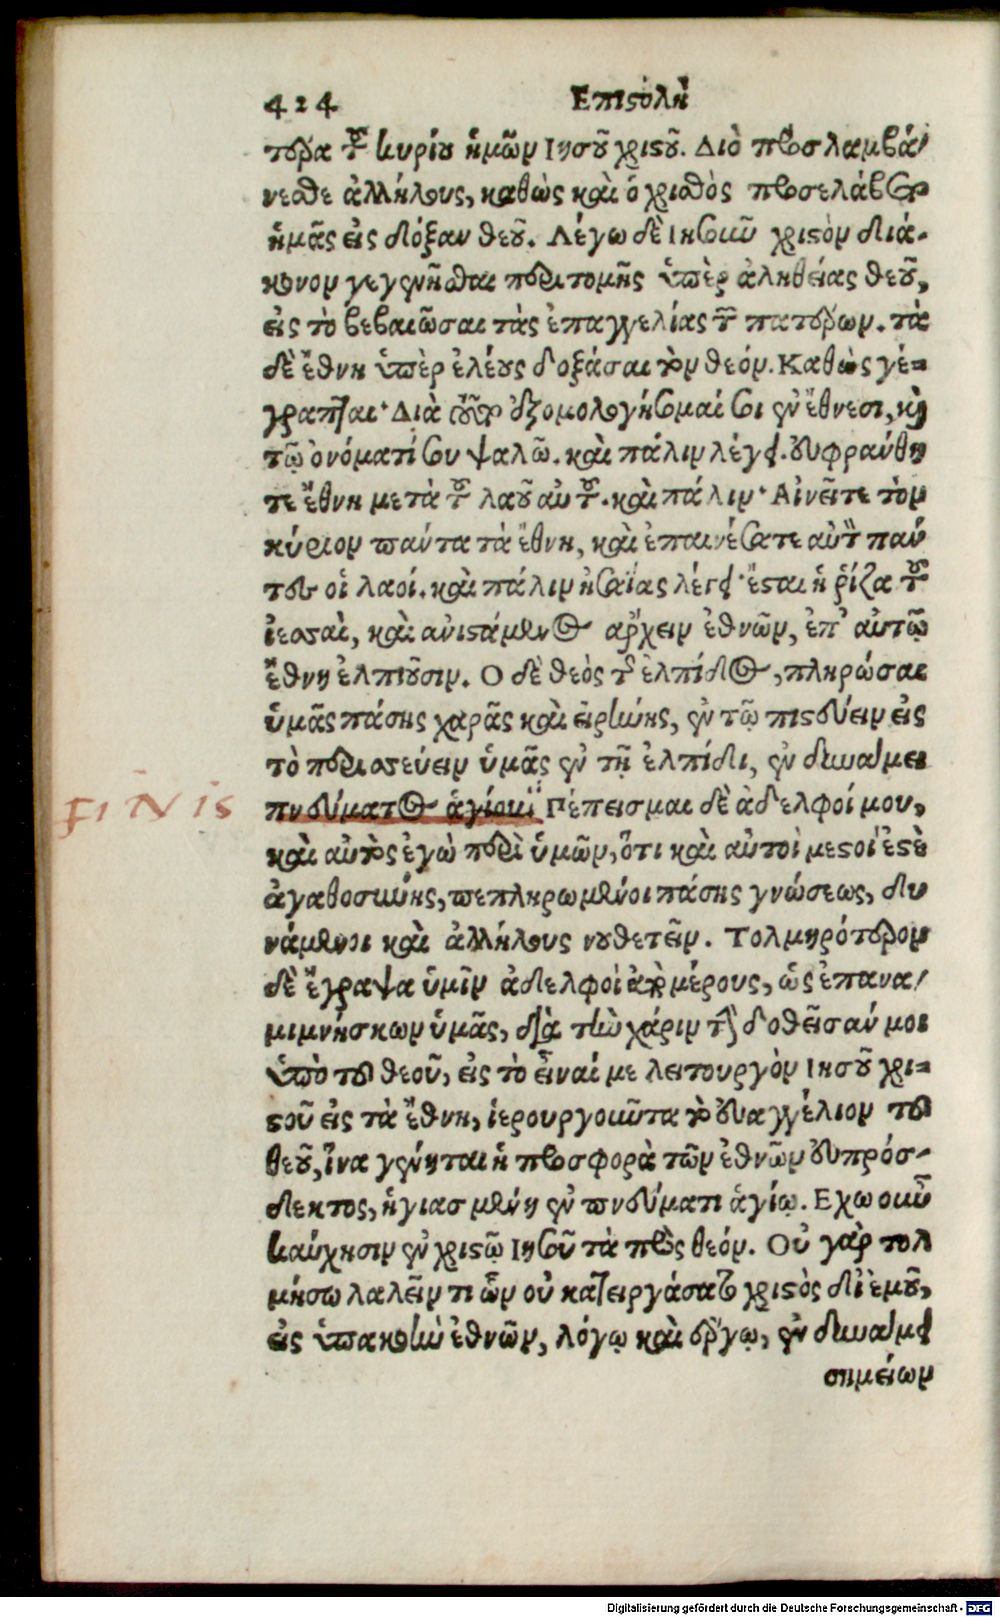 424 Επιστολὴ
τέρα τοῦ κυρίου ἡμῶν Ιησοῦ χριστοῦ. Διὸ προσλαμβά/
νεσθε ἀλλήλους, καθὼς καὶ ὁ χριστὸς προσελάβετο
ἡμᾶς εἰς δόξαν θεοῦ. Λέγω δὲ ιησοῦν χριστὸν διά-
κονον γεγενῆσθαι περιτομῆς ὑπὲρ ἀληθείας θεοῦ,
εἰς τὸ βεβαιῶσαι τὰς ἐπαγγελίας τῶν πατέρων. τὰ
δὲ ἔθνη ὑπὲρ ἐλέους δοξάσαι τὸν θεόν. Καθὼς γέ=
γραπται· Διὰ τοῦτο ἐξομολογήσομαί σοι ἐν ἔθνεσι, καὶ
τῷ ὀνόματί σου ψαλῶ. καὶ πάλιν λέγει. εὐφράνθη
τε ἔθνη μετὰ τοῦ λαοῦ αὐτοῦ. καὶ πάλιν· Αἰνεῖτε τὸν
κύριον πάντα τὰ ἔθνη, καὶ ἐπαινέσατε αὐτὸν πάν
τες οἱ λαοί. καὶ πάλιν ἠσαΐας λέγει· ἔσται ἡ ῥίζα τοῦ
ἰεσσαὶ, καὶ ἀνιστάμενος ἄρχειν ἐθνῶν, ἐπ' αὐτῷ
ἔθνη ἐλπιοῦσιν. Ο δὲ θεὸς τῆς ἐλπίδος, πληρώσαι
ὑμᾶς πάσης χαρᾶς καὶ εἰρήνης, ἐν τῷ πιστεύειν εἰς
τὸ περισσεύειν ὑμᾶς ἐν τῇ ἐλπίδι, ἐν δυνάμει
FINIS πνεύματος ἁγίου. Πέπεισμαι δὲ ἀδελφοί μου,
καὶ αὐτὸς ἐγὼ περὶ ὑμῶν, ὅτι καὶ αὐτοὶ μεστοί ἐστὲ
ἀγαθοσύνης, πεπληρωμένοι πάσης γνώσεως, δυ
νάμενοι καὶ ἀλλήλους νουθετεῖν. Τολμηρότερον
δὲ ἔγραψα ὑμῖν ἀδελφοὶ ἀπὸ μέρους, ὡς ἐπανα/
μιμνήσκων ὑμᾶς, διὰ τὴν χάριν τὴν δοθεῖσάν μοι
ὑπὸ τοῦ θεοῦ, εἰς τὸ εἶναί με λειτουργὸν ιησοῦ χρι=
στοῦ εἰς τὰ ἔθνη, ἱερουργοῦντα τὸ εὐαγγέλιον τοῦ
θεοῦ, ἵνα γένηται ἡ προσφορὰ τῶν ἐθνῶν εὐπρόσ-
δεκτος, ἡγιασμένη ἐν πνεύματι ἁγίῳ. Εχω οὖν
καύχησιν ἐν χριστῷ Ιησοῦ τὰ πρὸς θεόν. Οὐ γὰρ τολ
μήσω λαλεῖν τι ὧν οὐ κατειργάσατο χριστὸς δι' ἐμοῦ,
εἰς ὑπακοὴν ἐθνῶν, λόγῳ καὶ ἔργῳ, ἐν δυνάμει
σημείων
Digitalisierung gefördert durch die Deutsche Forschungsgemeinschaft - DFG